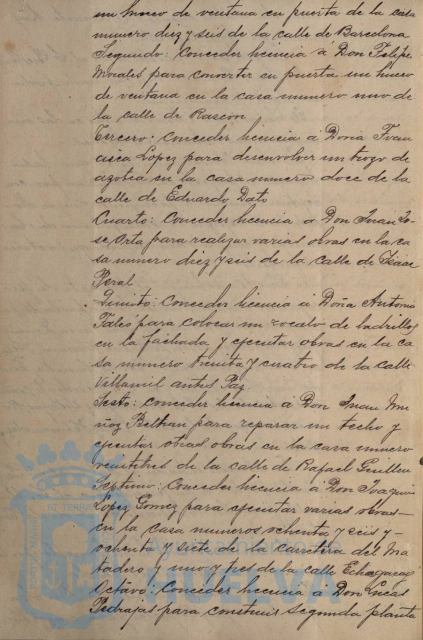 un hueco de ventana en puerta de la casa
numero diez y seis de la calle de Barcelona
Segundo: Conceder licencia á Don Felipe
Morales para convertir en puerta un hueco
de ventana en la casa numero uno de
la calle de Rascon
Tercero: Conceder licencia á Doña Fran
cisca Lopez para desenvolver un trozo de
azotea en la casa numero doce de la
calle de Eduardo Dato
Cuarto: Conceder licencia a Don Juan Jo
se Orta para realizar varias obras en la ca
sa numero diez y seis de la calle de Isaac
Peral
Quinto: Conceder licencia á Doña Antonia
para colocar un zocalo de ladrillos
en la fachada y ejecutar obras en la ca
sa numero treinta y cuatro de la calle
Villamil antes Paz
Sesto: Conceder licencia á Don Juan Mu
ñoz Beltran para reparar un techo y
ejecutar otras obras en la casa numero
veintitres de la calle de Rafael Guillen
Septimo: Conceder licencia a Don Joaquin
Lopez Gomez para ejecutar varias obras
en la casa numeros ochenta y seis y
ochenta y siete de la carretera del Ma
tadero y uno y tres de la calle Echegaray
Octavo: Conceder licencia a Don Lucas
Pedrajas para construir segunda planta
HUELVA